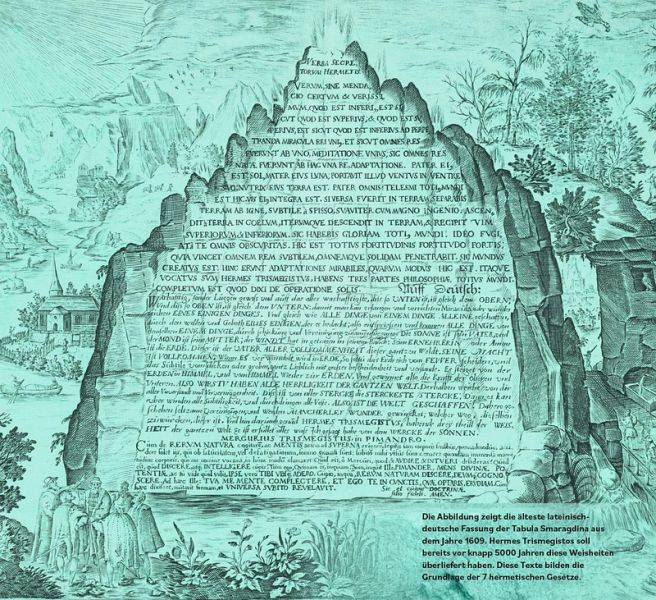 VERBA SECRE
TORUM HERMETIS
VERUM, SINE MENDA,
CIO CERTUM & VERISSI
MUM, QUOD EST INFERI, EST SI
CUT QUOD EST SUPERIUS, & QUOD EST SU
PERIUS, EST SICUT QUOD EST INFERIUS AD PERPE
TRANDA MIRACULA REI UNI, ET SICUT OMNES RES
FUERUNT AB UNO, MEDITATIONE UNIUS, SIC OMNES RES
NATÆ FUERUNT AB HAC UNA RE ADAPTATIONE. PATER EI,
EST SOL, MATER EIUS LUNA, PORTAVIT ILLUD VENTUS IN VENTRE
SUO, NUTRIX EIUS TERRA EST. PATER OMNIS TELESMI TOTI, MUNDI
EST HIC VIS EI, INTEGRA EST. SI VERSA FUERIT IN TERRAM, SEPARABIS
TERRAM AB IGNE, SUBTILE À SPISSO, SUAVITER CUM MAGNO INGENIO. ASCEN,
DIT À TERRA IN COELUM, ITERUMQUE DESCENDIT IN TERRAM, & RECIPIT VIM
SUPERIORUM & INFERIORUM. SIC HABEBIS GLORIAM TOTI, MUNDI. IDEO FUGI,
AT À TE OMNIS OBSCURITAS. HIC EST TOTIUS FORTITUDINIS FORTITUDO FORTIS,
QUIA VINCET OMNEM REM SUBTILEM, OMNEMQUE SOLIDAM PENETRABIT. SIC MUNDUS
CREATUS EST. HINC ERUNT ADAPTATIONES MIRABILES, QUARUM MODUS HIC EST. ITAQUE
VOCATUS SUM HERMES TRISMEGISTUS, HABENS TRES PARTES PHILOSOPHIÆ, TOTIUS MUNDI.
COMPLETUM EST QUOD DIXI DE OPERATIONE SOLIS. Auff Deutsch:
Warhafftig, sonder Liegen gewiß und auff das aller warhafftigste, dis so UNTEN ist, ist gleich dem OBERN:
Und dis so OBEN ist, ist gleich dem UNTERN: damit man kan erlangen und verrichten Miracula oder wunder
zeichen EINES EINIGEN DINGES. Und gleich wie ALLE DINGE von EINEM DINGE ALLEINE
durch den willen und Gebott EINES EINIGEN, der es bedacht, ALLE DINGE von
EINEM DINGE, DIE SONNE ist sein VATER, und
der MOND ist seine MUTTER, der WINDT hat in getragen in seinem Bauch: Sein ERNEHRERIN oder Amme
ist die ERDE. Dieser ist der VATER ALLER VOLLKOMMENHEIT dieser gantzen Welt. SEINE MACHT
IST VOLLKOMMEN, Wenn ES verwandelt wird in ERDE, so soltu das Erdreich vom FEWER scheiden, und
das Subtile vom dicken oder groben, gantz lieblich mit grosser bescheidenheit und verstande. Es steiget von der
ERDEN in Himmel, und vom HIMMEL Wieder zur ERDEN, und gewinnet also die Krafft der Obern und
Untern. ALSO WIRSTU HABEN ALLE HERRLIGKEIT DER GANTZEN WELT. Derhalben weiche von dir
aller Unverstandt und Unvermügenheit. Dis ist von aller STERCKE die STERCKESTE STERCKE, Dann es kan
uber winden alle Subtiligkeit, und durchdringen alle Veste. ALSO IST DIE WELT GESCHAFFEN: Daher ge,
schehen seltzame Vereinigungen, und werden MANCHERLEY WUNDER gewircket, welcher weg
zuwircken, dieser ist. Und bin darumb genand HERMES TRISMEGISTUS, habende drey theill der WEIS,
HEIT der gantzen Welt. Es ist erfüllet alles was ich gesagt habe von dem WERCKE der SONNEN.
MERCURIUS TRISMEGISTUS, IN PIMANDRO.
Cum de RERUM NATURA cogitarem, ac MENTIS aciem ad SUPERNA erigerem,
QUID est quod AUDIRE & INTUERI desideras?
quid DISCERE atque INTELLEGERE cupis? PIMANDER, MENS DIVINÆ PO,
TENTIÆ, RERUM NATURAM DISCERE, DEUMQ COGNO,
SCERE. Ad hæc Ille: TUA ME MENTE COMPLECTERE, ET EGO TE IN CUNCTIS, QUÆ OPTARIS, ERUDIAM. Cum
hæc dixisset, mutavit formam, et UNIVERSA SUBITO REVELAVIT.
AMEN.
Die Abbildung zeigt die älteste lateinisch-
deutsche Fassung der Tabula Smaragdina aus
dem Jahre 1609. Hermes Trismegistos soll
bereits vor knapp 5000 Jahren diese Weisheiten
überliefert haben. Diese Texte bilden die
Grundlage der 7 hermetischen Gesetze.